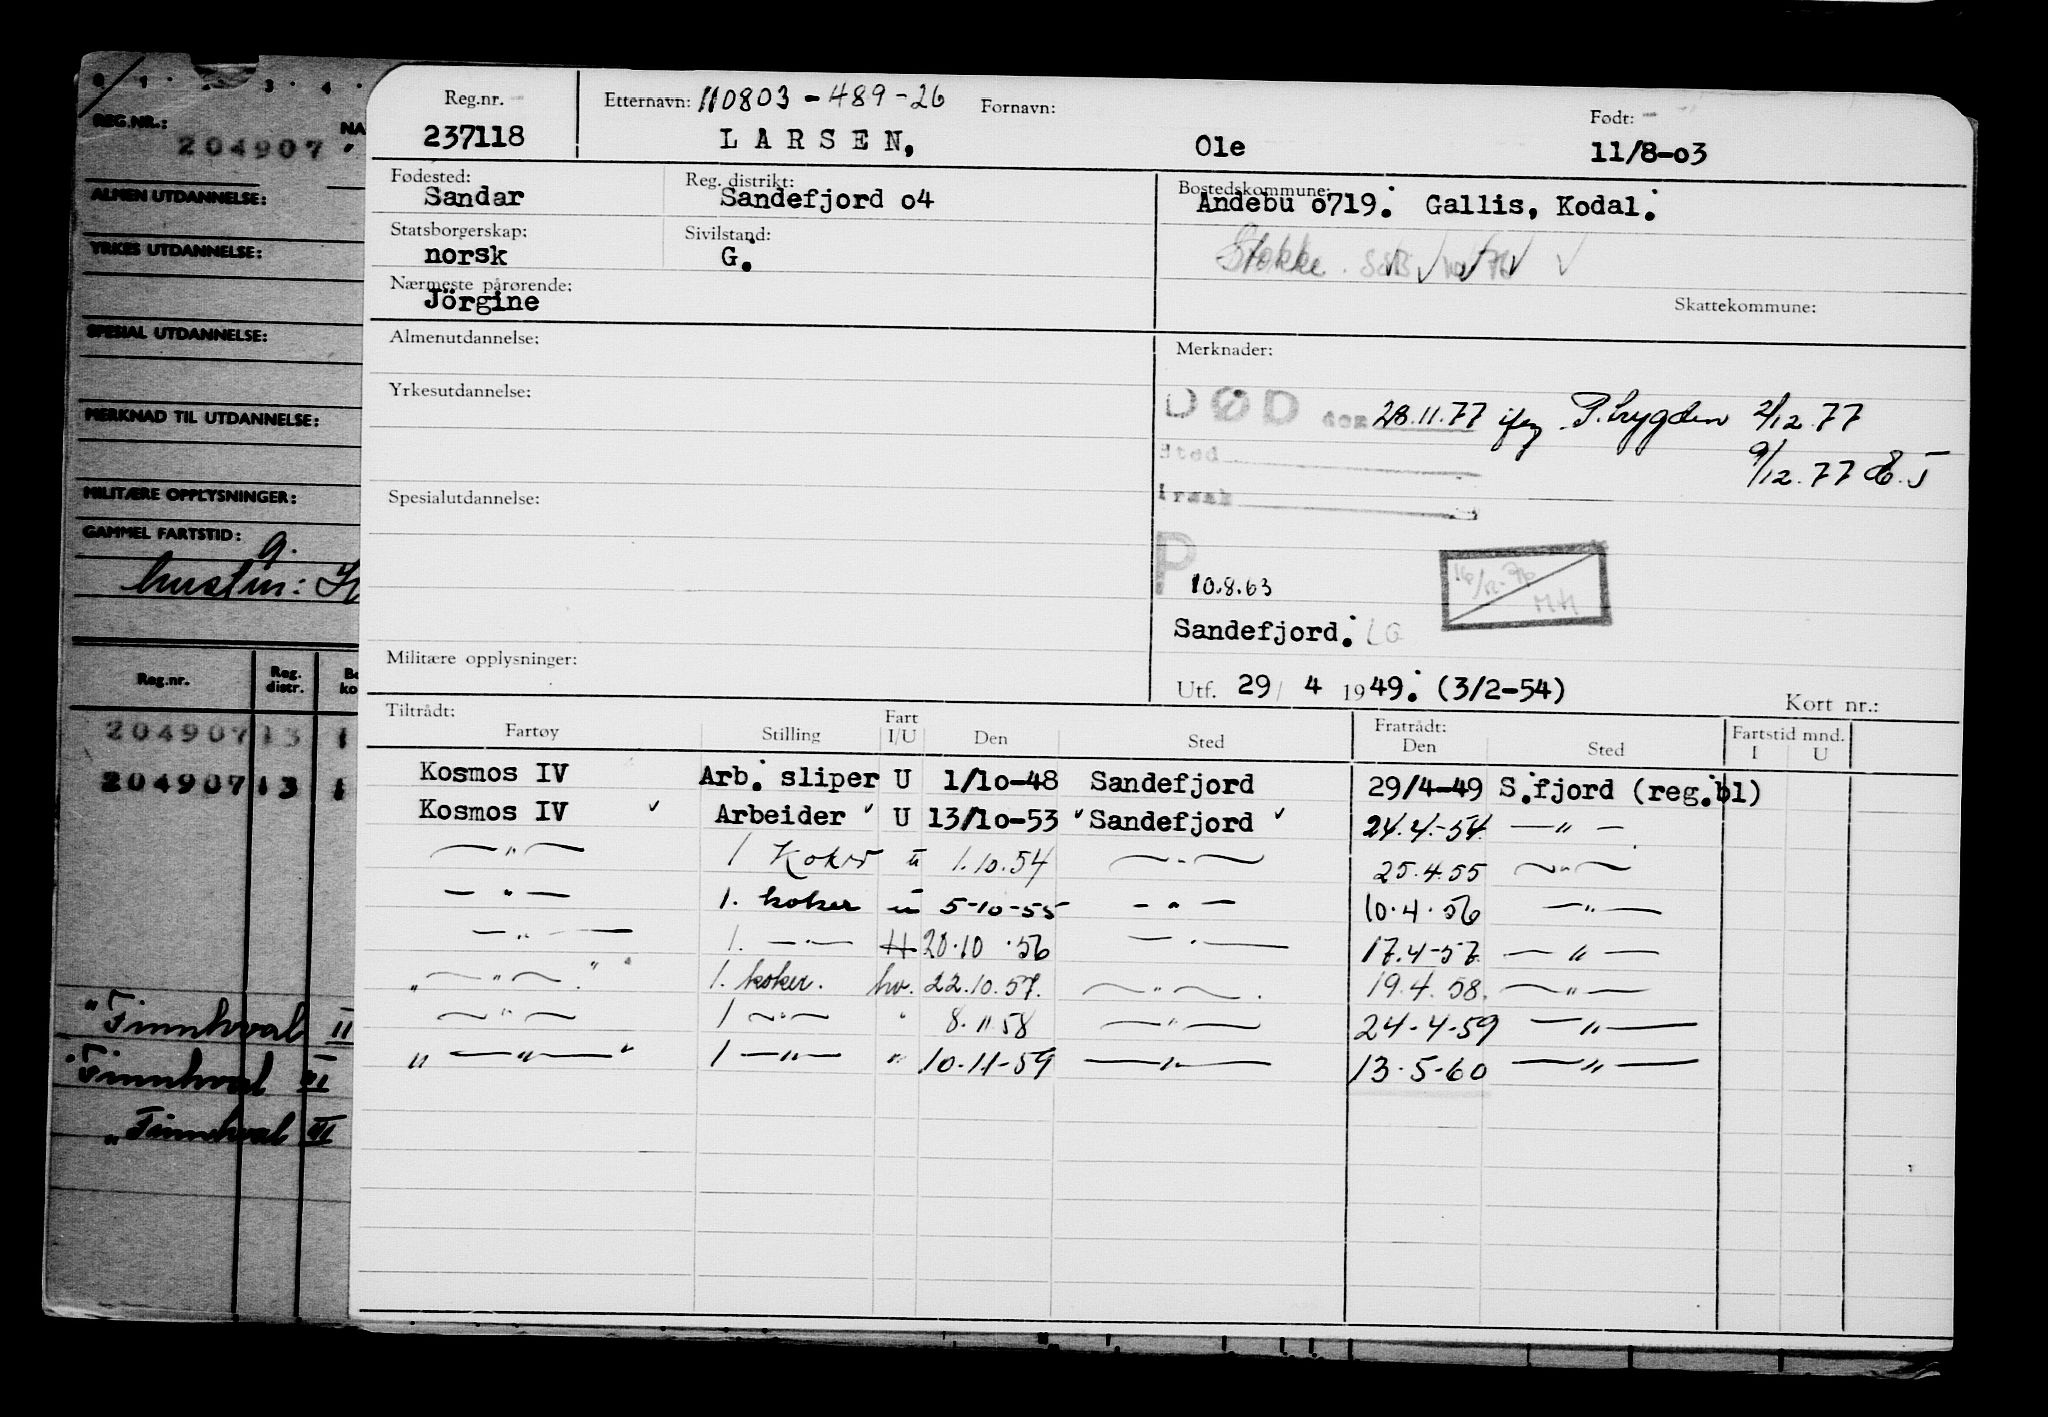 0 1 . 3 . 4 .
REG.NR.:
204907
ALMEN UTDANNELSE:
YRKES UTDANNELSE:
SPESIAL UTDANNELSE:
MERKNAD TIL UTDANNELSE:
MILITÆRE OPPLYSNINGER:
GAMMEL FARTSTID:
Reg.nr. Reg. distr.
204907 13 1
204907 13 1
"Finnhval II
"Finnhval III
"Finnhval III
Reg.nr. Etternavn: 110803-489-26 Fornavn: Født:
237118 LARSEN, Ole 11/8-o3
Fødested: Reg. distrikt: Bostedskommune:
Sandar Sandefjord o4 Andebu o719. Gallis, Kodal.
Statsborgerskap: Sivilstand: Stokke
norsk G.
Nærmeste pårørende:
Jörgine Skattekommune:
Almenutdannelse: Merknader:
Yrkesutdannelse:
DØD den 28.11.77 iføg P. trygden 2/12.77
Sted 9/12.77
Spesialutdannelse: årsak
P 10.8.63
Sandefjord. LG
Militære opplysninger:
Utf. 29/ 4 1949. (3/2-54) Kort nr.:
Tiltrådt: Fratrådt: Fartstid mnd.
Fartøy Stilling Fart I/U Den Sted Den Sted I U
Kosmos IV Arb. sliper U 1/1o-48 Sandefjord 29/4-49 S.fjord (reg.bl)
Kosmos IV Arbeider U 13/1o-53 Sandefjord 24.4.-54. —"—
—"— 1 Koker u 1.10.54 —"— 25.4.55 —"—
—"— 1. koker u 5-10-55 —"— 10.4.56 —"—
—"— 1. —"— H 20.10.56 —"— 17.4-57. —"—
"—"—" 1. koker. hv. 22.10.57. —"—. 19.4.58. —"—
—"— 1 —"— " 8.11 58 —"— 24-4-59 —"—
"—"—" 1 —"— " 10.11-59 —"— 13.5-60 —"—